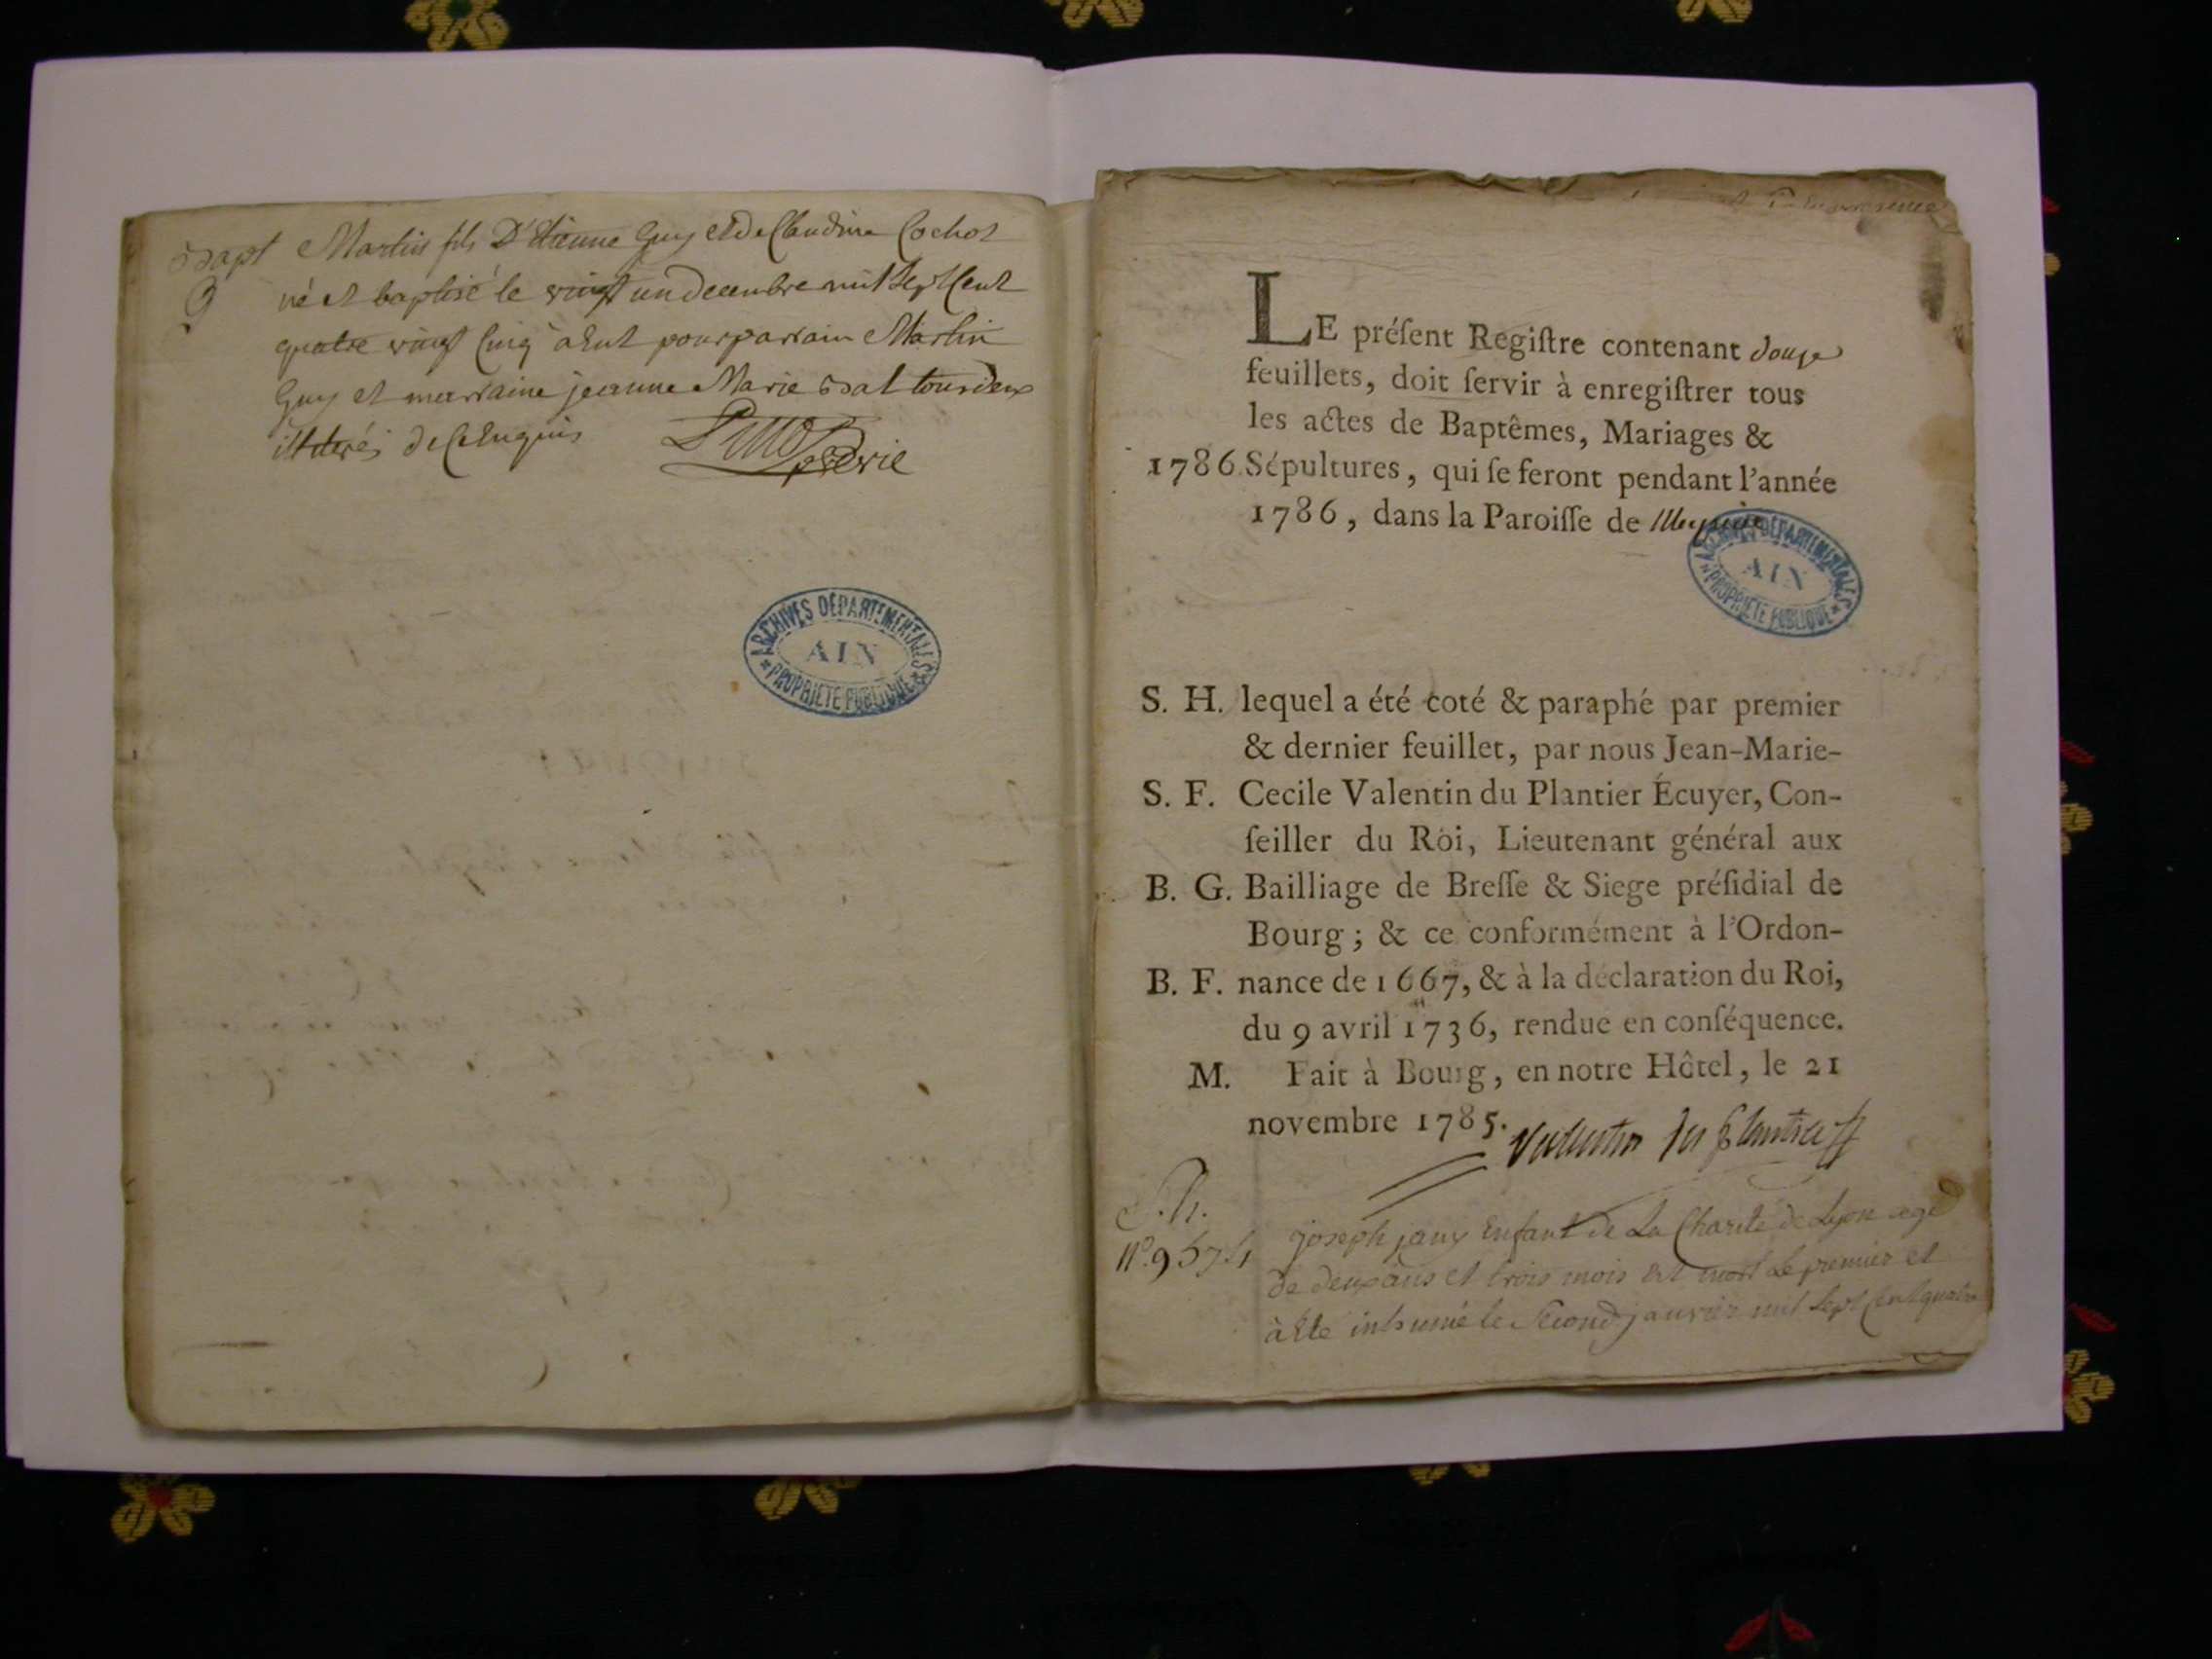 Bapt Martin fils D'Etienne Guy et de Claudine Cochot
9 né et baptisé le vingt un decembre mil Sept Cent
quatre vingt Cinq à Eut pour parrain Martin
Guy et marraine jeanne Marie tous deux
illiterés de Ce Enquis
ARCHIVES DÉPARTEMENTALES
AIN
* PROPRIÉTÉ PUBLIQUE *
LE préſent Regiſtre contenant douze
feuillets, doit ſervir à enregiſtrer tous
les actes de Baptêmes, Mariages &
1786. Sépultures, qui ſe feront pendant l'année
1786, dans la Paroiſſe de
ARCHIVES DÉPARTEMENTALES
AIN
* PROPRIÉTÉ PUBLIQUE *
S. H. lequel a été coté & paraphé par premier
& dernier feuillet, par nous Jean-Marie-
S. F. Cecile Valentin du Plantier Écuyer, Con-
ſeiller du Roi, Lieutenant général aux
B. G. Bailliage de Breſſe & Siege préſidial de
Bourg; & ce conformément à l'Ordon-
B. F. nance de 1667, & à la déclaration du Roi,
du 9 avril 1736, rendue en conſéquence.
M. Fait à Bourg, en notre Hôtel, le 21
novembre 1785.
Valentin du plantier
S. h. joseph Enfant de La Charité de Lyon agé
de deux ans et trois mois Est mort Le premier et
à Eté inhumé le Second janvier mil Sept Cent quatre